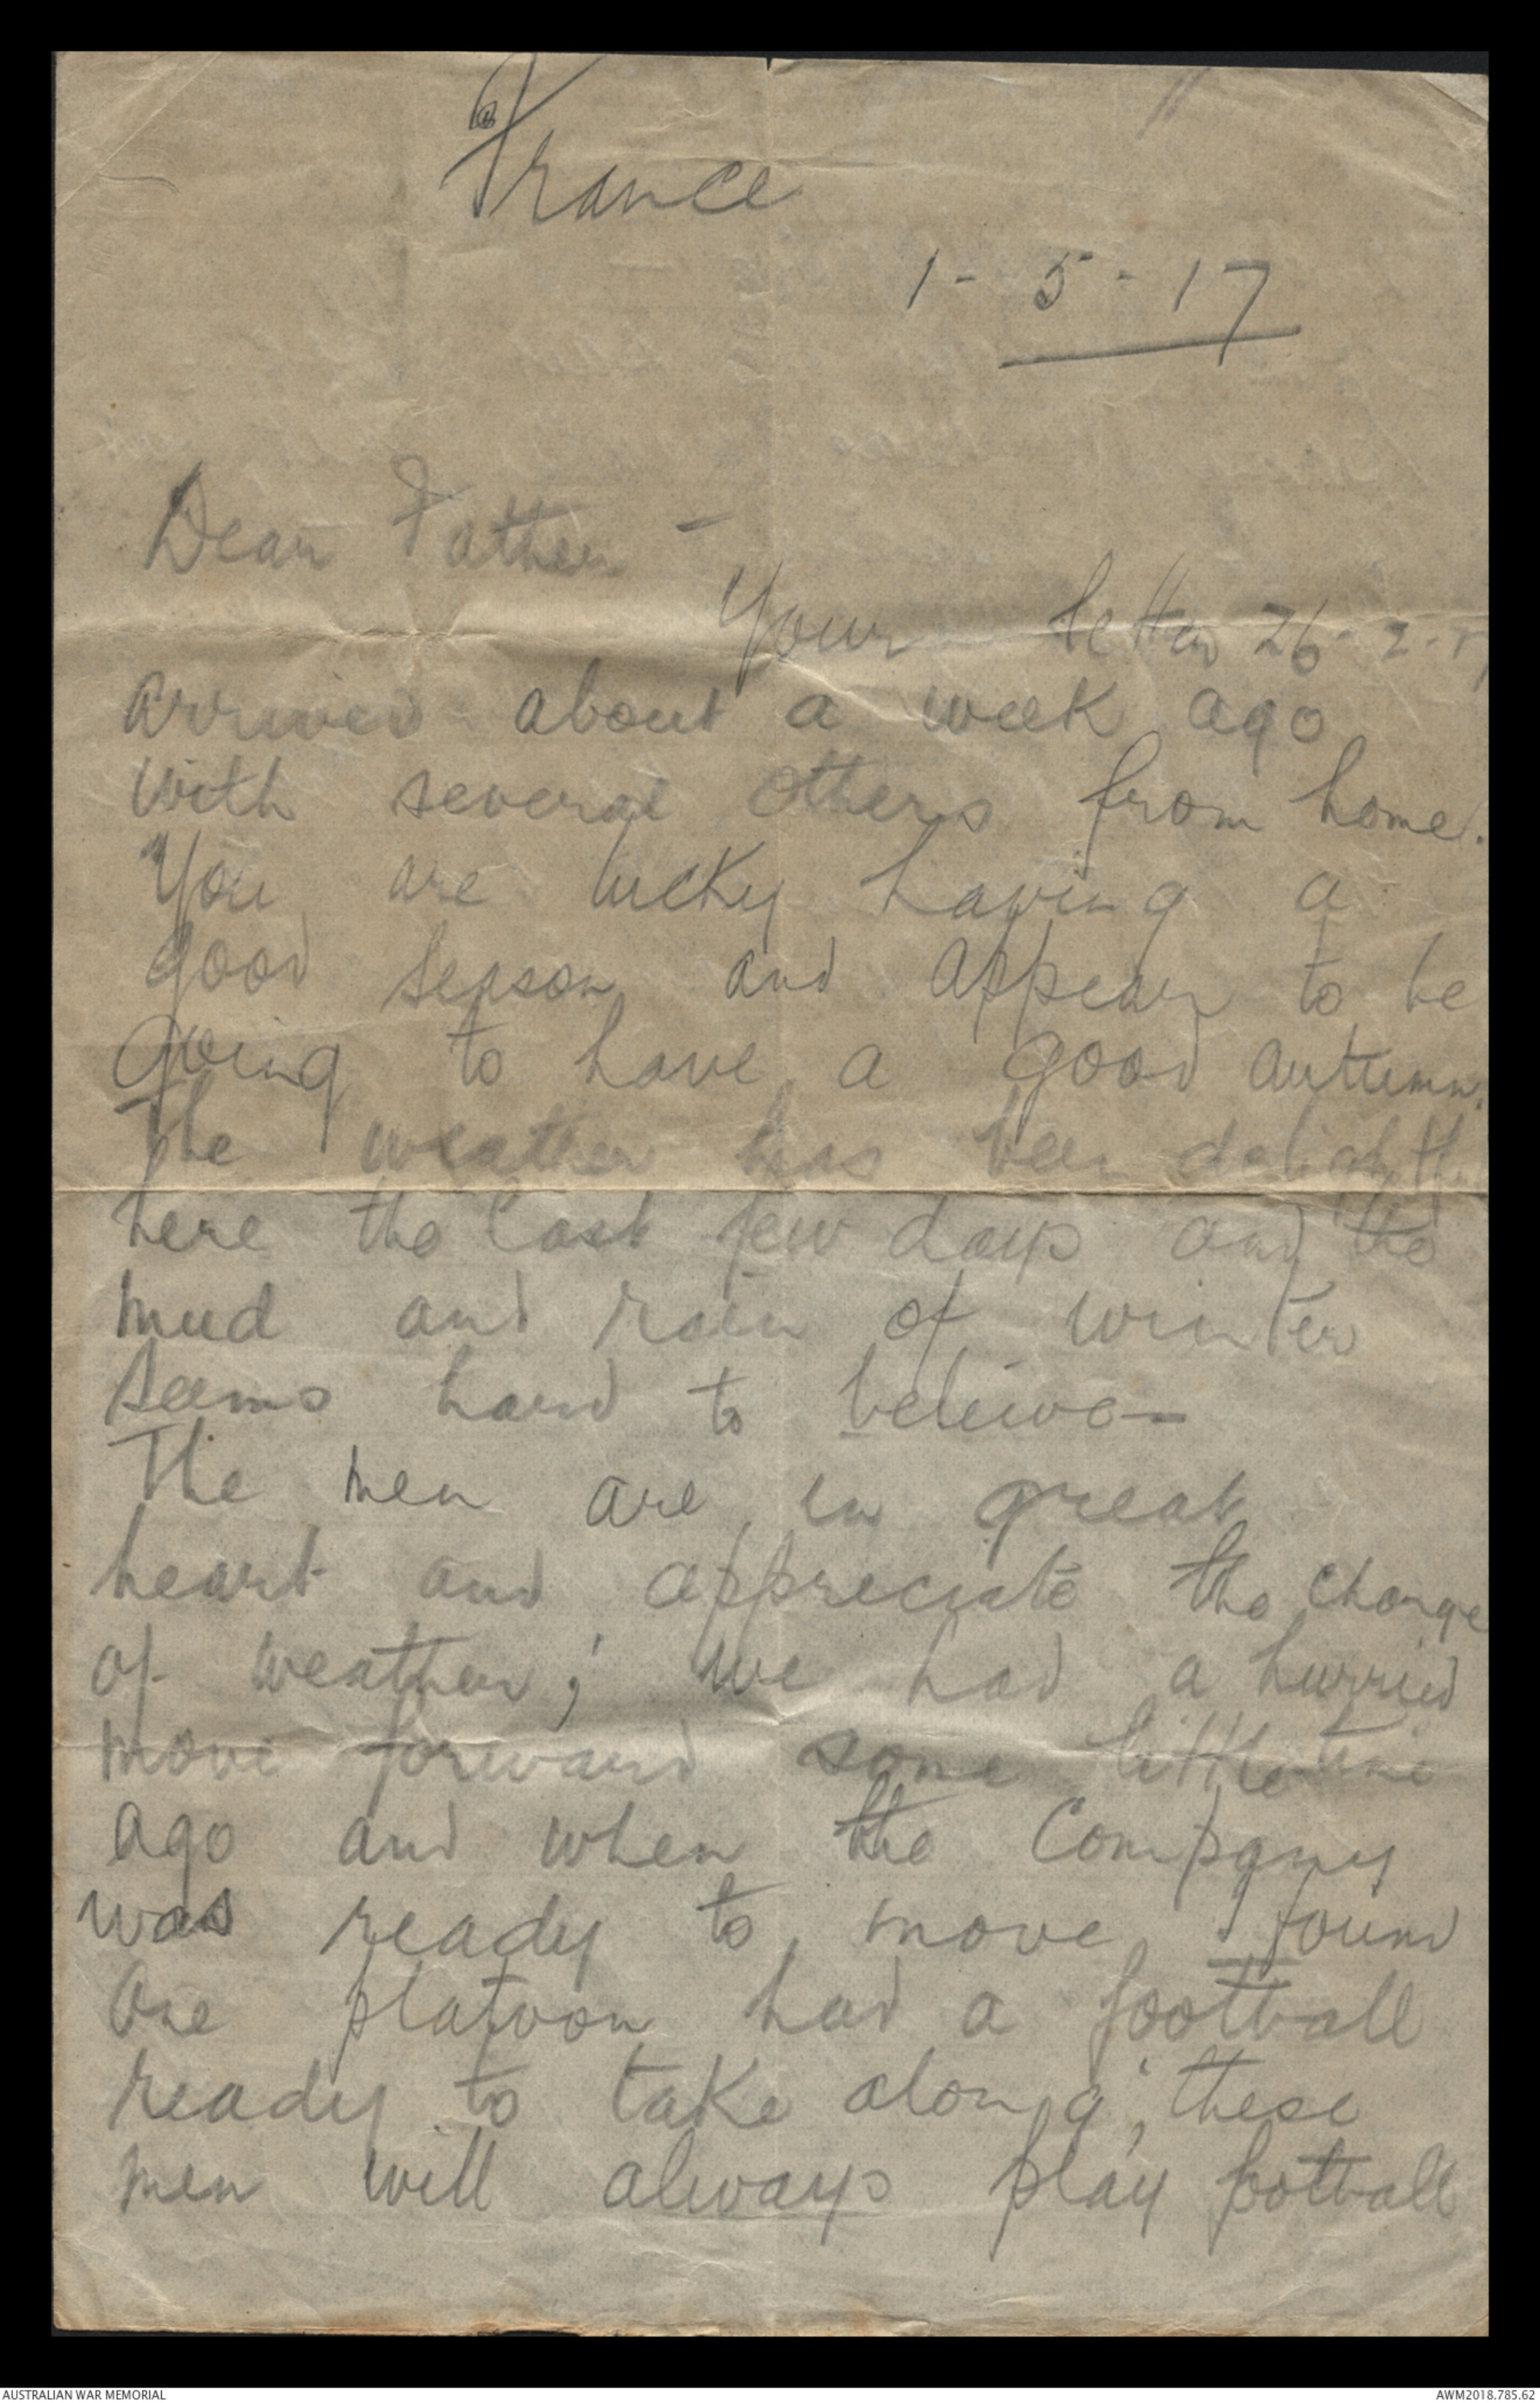 France
1 - 5 - 17
Dear Father -
Your letter 26-2-17
arrived about a week ago
with several others from home.
You are lucky having a
good season and appear to be
going to have a good autumn.
The weather has been delightful
here the last few days and the
mud and rain of winter
seems hard to beleive -
The men are in great
heart and appreciate the change
of weather; we had a hurried
move forward some little time
ago and when the Company
was ready to move I found
one platoon had a football
ready to take along; these
men will always play football
AUSTRALIAN WAR MEMORIAL
AWM2018.785.62